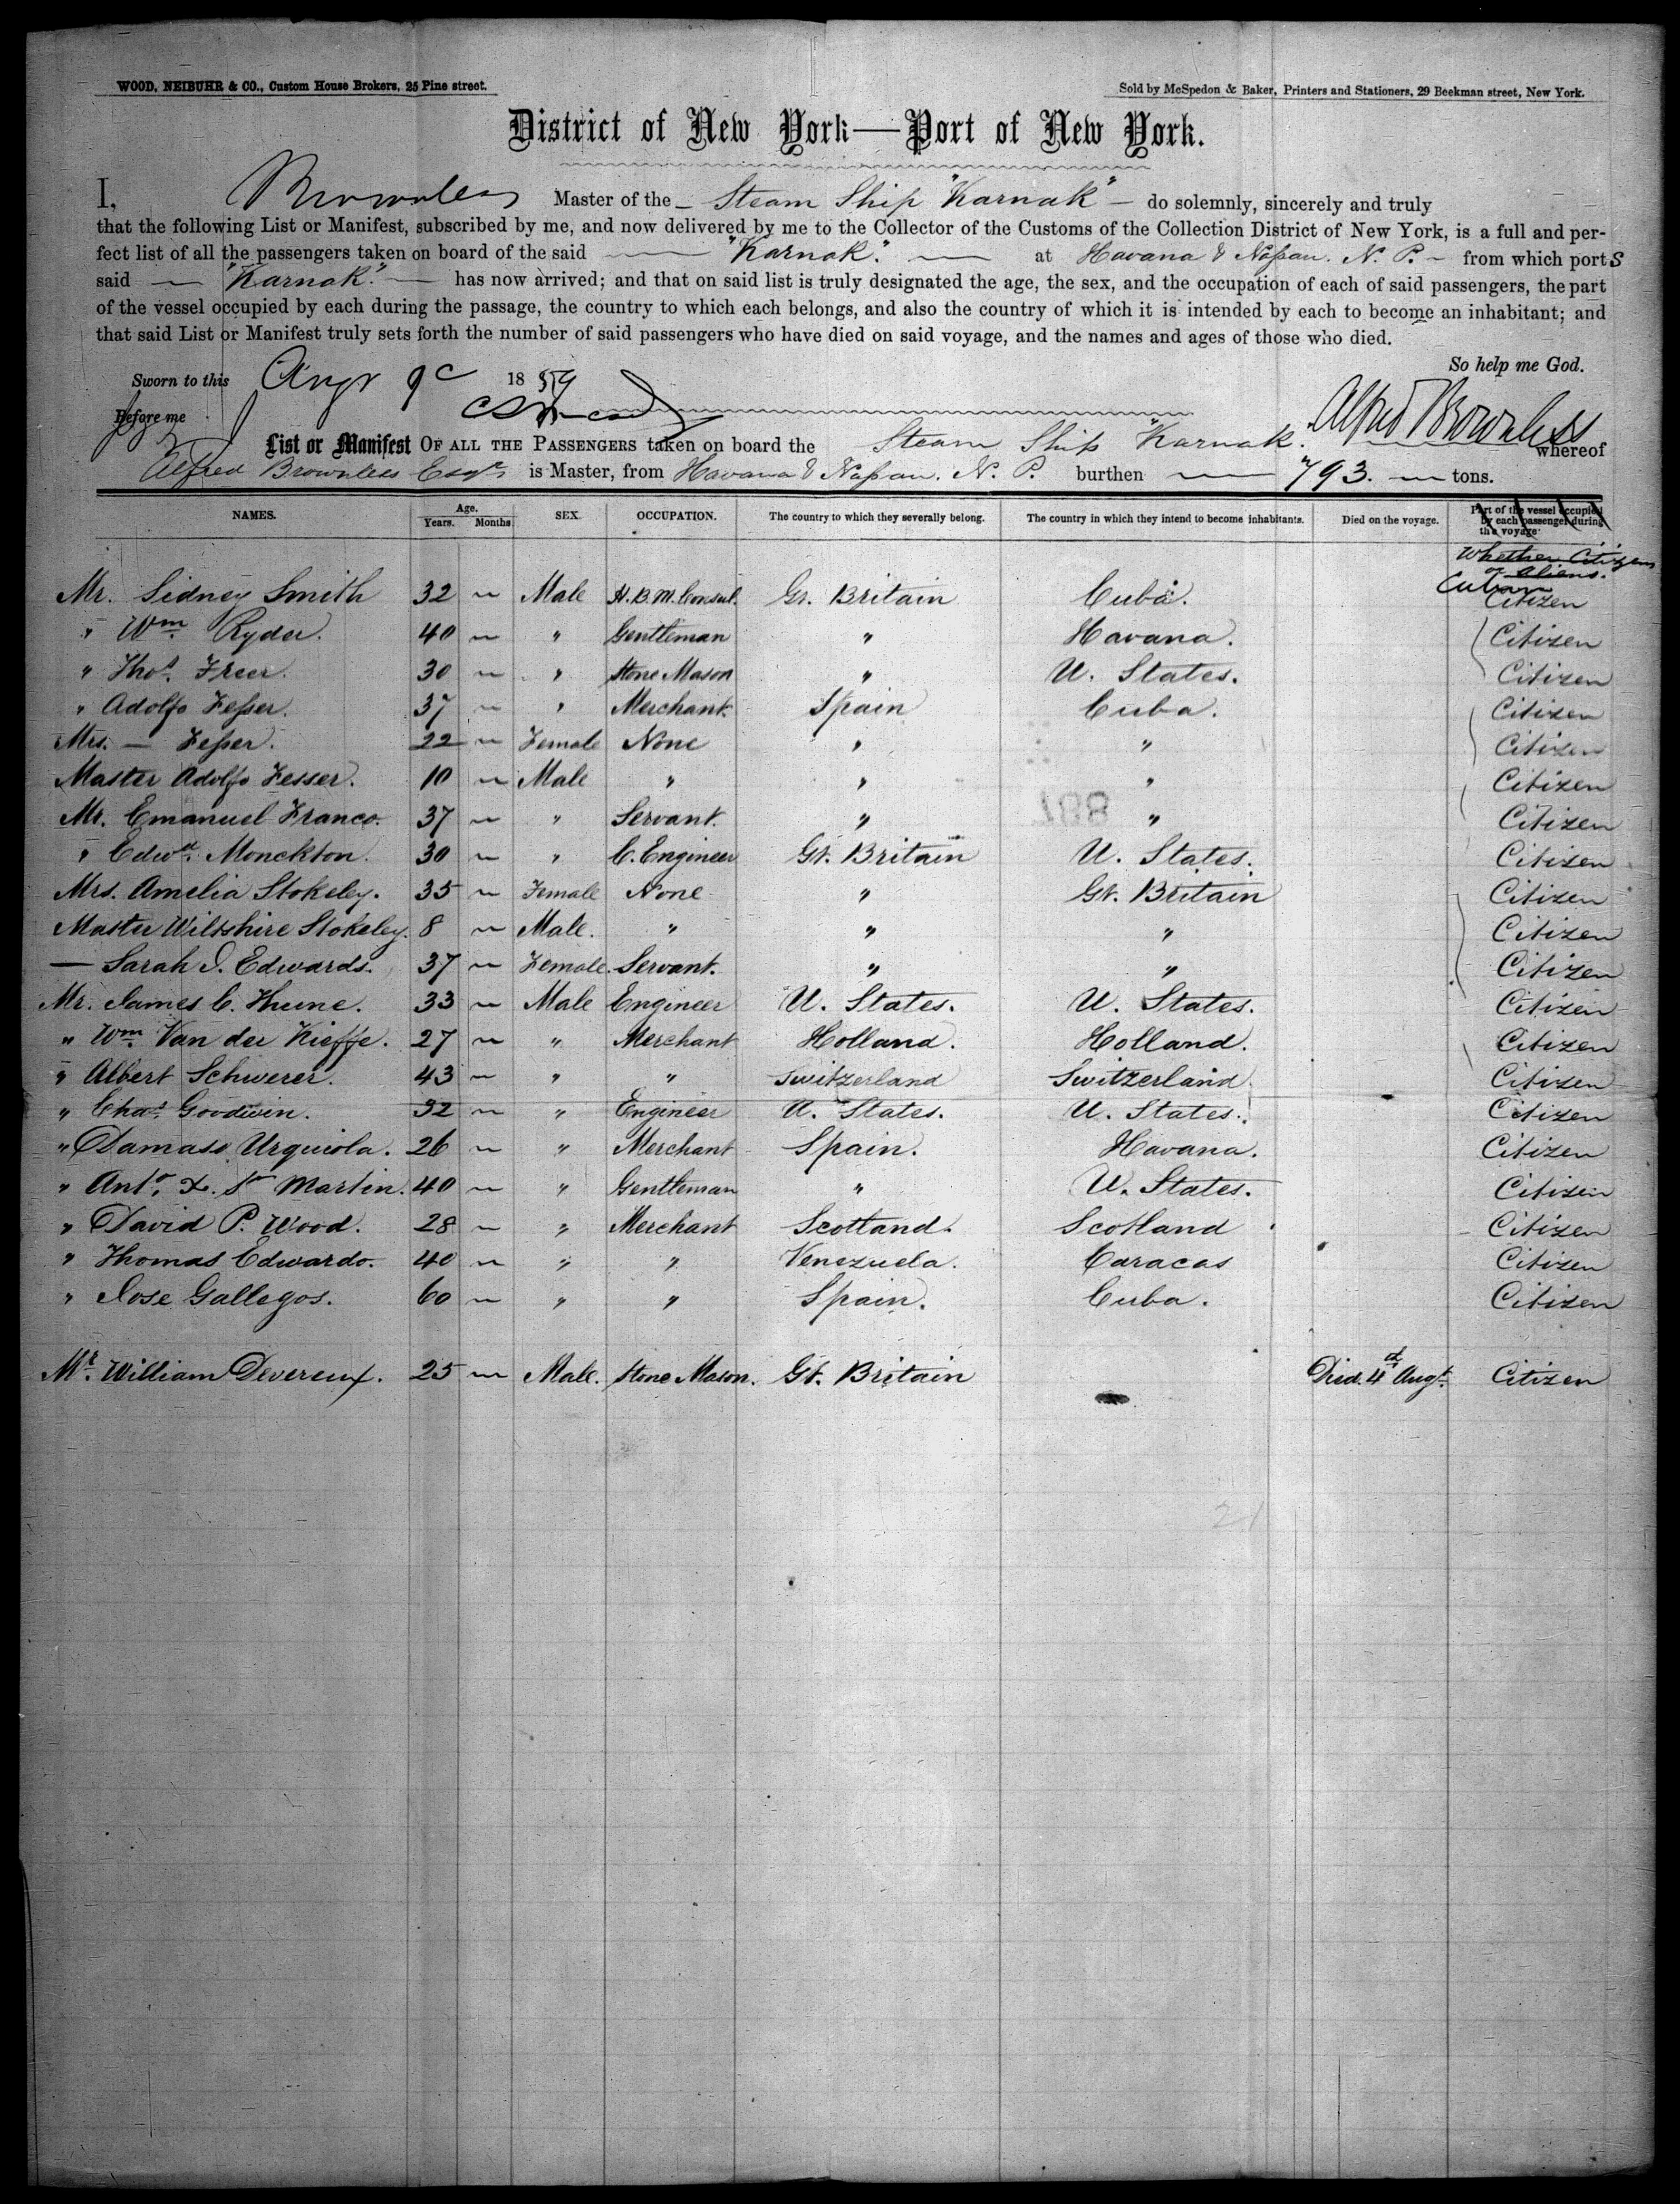 WOOD, NEIBUHR & CO., Custom House Brokers, 25 Pine street.
Sold by McSpedon & Baker, Printers and Stationers, 29 Beekman street, New York.
District of New York—Port of New York.
I, Brownless Master of the – Steam Ship "Karnak" – do solemnly, sincerely and truly
that the following List or Manifest, subscribed by me, and now delivered by me to the Collector of the Customs of the Collection District of New York, is a full and per-
fect list of all the passengers taken on board of the said — "Karnak." — at Havana & Nassau. N. P. – from which ports
said — "Karnak." — has now arrived; and that on said list is truly designated the age, the sex, and the occupation of each of said passengers, the part
of the vessel occupied by each during the passage, the country to which each belongs, and also the country of which it is intended by each to become an inhabitant; and
that said List or Manifest truly sets forth the number of said passengers who have died on said voyage, and the names and ages of those who died.
So help me God.
Sworn to this Augt 9 1859
Before me
Alfred Brownless
List or Manifest OF ALL THE PASSENGERS taken on board the Steam Ship "Karnak." whereof
Alfred Brownless Esqr is Master, from Havana & Nassau. N. P. burthen — 793. — tons.
NAMES. Age. Years. Months. SEX. OCCUPATION. The country to which they severally belong. The country in which they intend to become inhabitants. Died on the voyage. Part of the vessel occupied by each passenger during the voyage
Whether Citizens
or Aliens.
Cuban
Mr. Sidney Smith 32 ~ Male H.B.M. Consul. Gr. Britain Cuba. Citizen
" Wm. Ryder. 40 ~ " Gentleman " Havana. Citizen
" Thos. Freer. 30 ~ " Stone Mason " U. States. Citizen
" Adolfo Fesser. 37 ~ " Merchant. Spain Cuba. Citizen
Mrs. — Fesser. 22 ~ Female None " " Citizen
Master Adolfo Fesser. 10 ~ Male " " " Citizen
Mr. Emanuel Franco. 37 ~ " Servant. " " Citizen
" Edwd. Monckton. 30 ~ " C. Engineer Gt. Britain U. States. Citizen
Mrs. Amelia Stokeley. 35 ~ Female None " Gt. Britain Citizen
Master Wiltshire Stokeley. 8 ~ Male. " " " Citizen
— Sarah I. Edwards. 37 ~ Female. Servant. " " Citizen
Mr. James C. Hune. 33 ~ Male Engineer U. States. U. States. Citizen
" Wm. Van der Kieffe. 27 ~ " Merchant Holland. Holland. Citizen
" Albert Schwerer. 43 ~ " " Switzerland Switzerland. Citizen
" Chas. Goodwin. 32 ~ " Engineer U. States. U. States. Citizen
" Damaso Urquiola. 26 ~ " Merchant Spain. Havana. Citizen
" Anto. Martin. 40 ~ " Gentleman " U. States. Citizen
" David P. Wood. 28 ~ " Merchant Scotland. Scotland Citizen
" Thomas Edwardo. 40 ~ " " Venezuela. Caracas Citizen
" Jose Gallegos. 60 ~ " " Spain. Cuba. Citizen
Mr. William Devereux. 25 ~ Male. Stone Mason. Gt. Britain Died. 4th Augt. Citizen
21